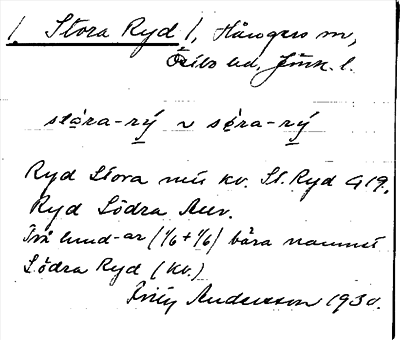 1. Stora Ryd /, Hångers sn,
Östbo hd, Jönk. l.
stóra-rý ~ sǿra-rý
Ryd Stora mtl kv. St. Ryd G 19.
Ryd Södra Anv.
Två hmd-ar (1/6 + 1/6) bära namnet
Södra Ryd (kv.)
Andersson 1930.